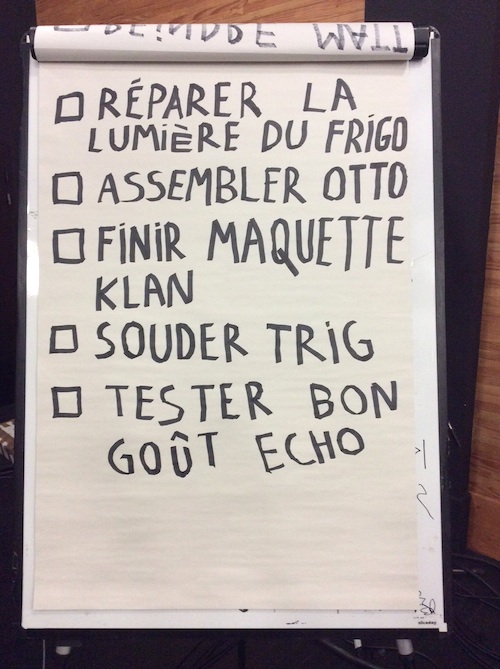 PEINDRE WATT
RÉPARER LA
LUMIÈRE DU FRIGO
ASSEMBLER OTTO
FINIR MAQUETTE
KLAN
SOUDER TRIG
TESTER BON
GOÛT ECHO